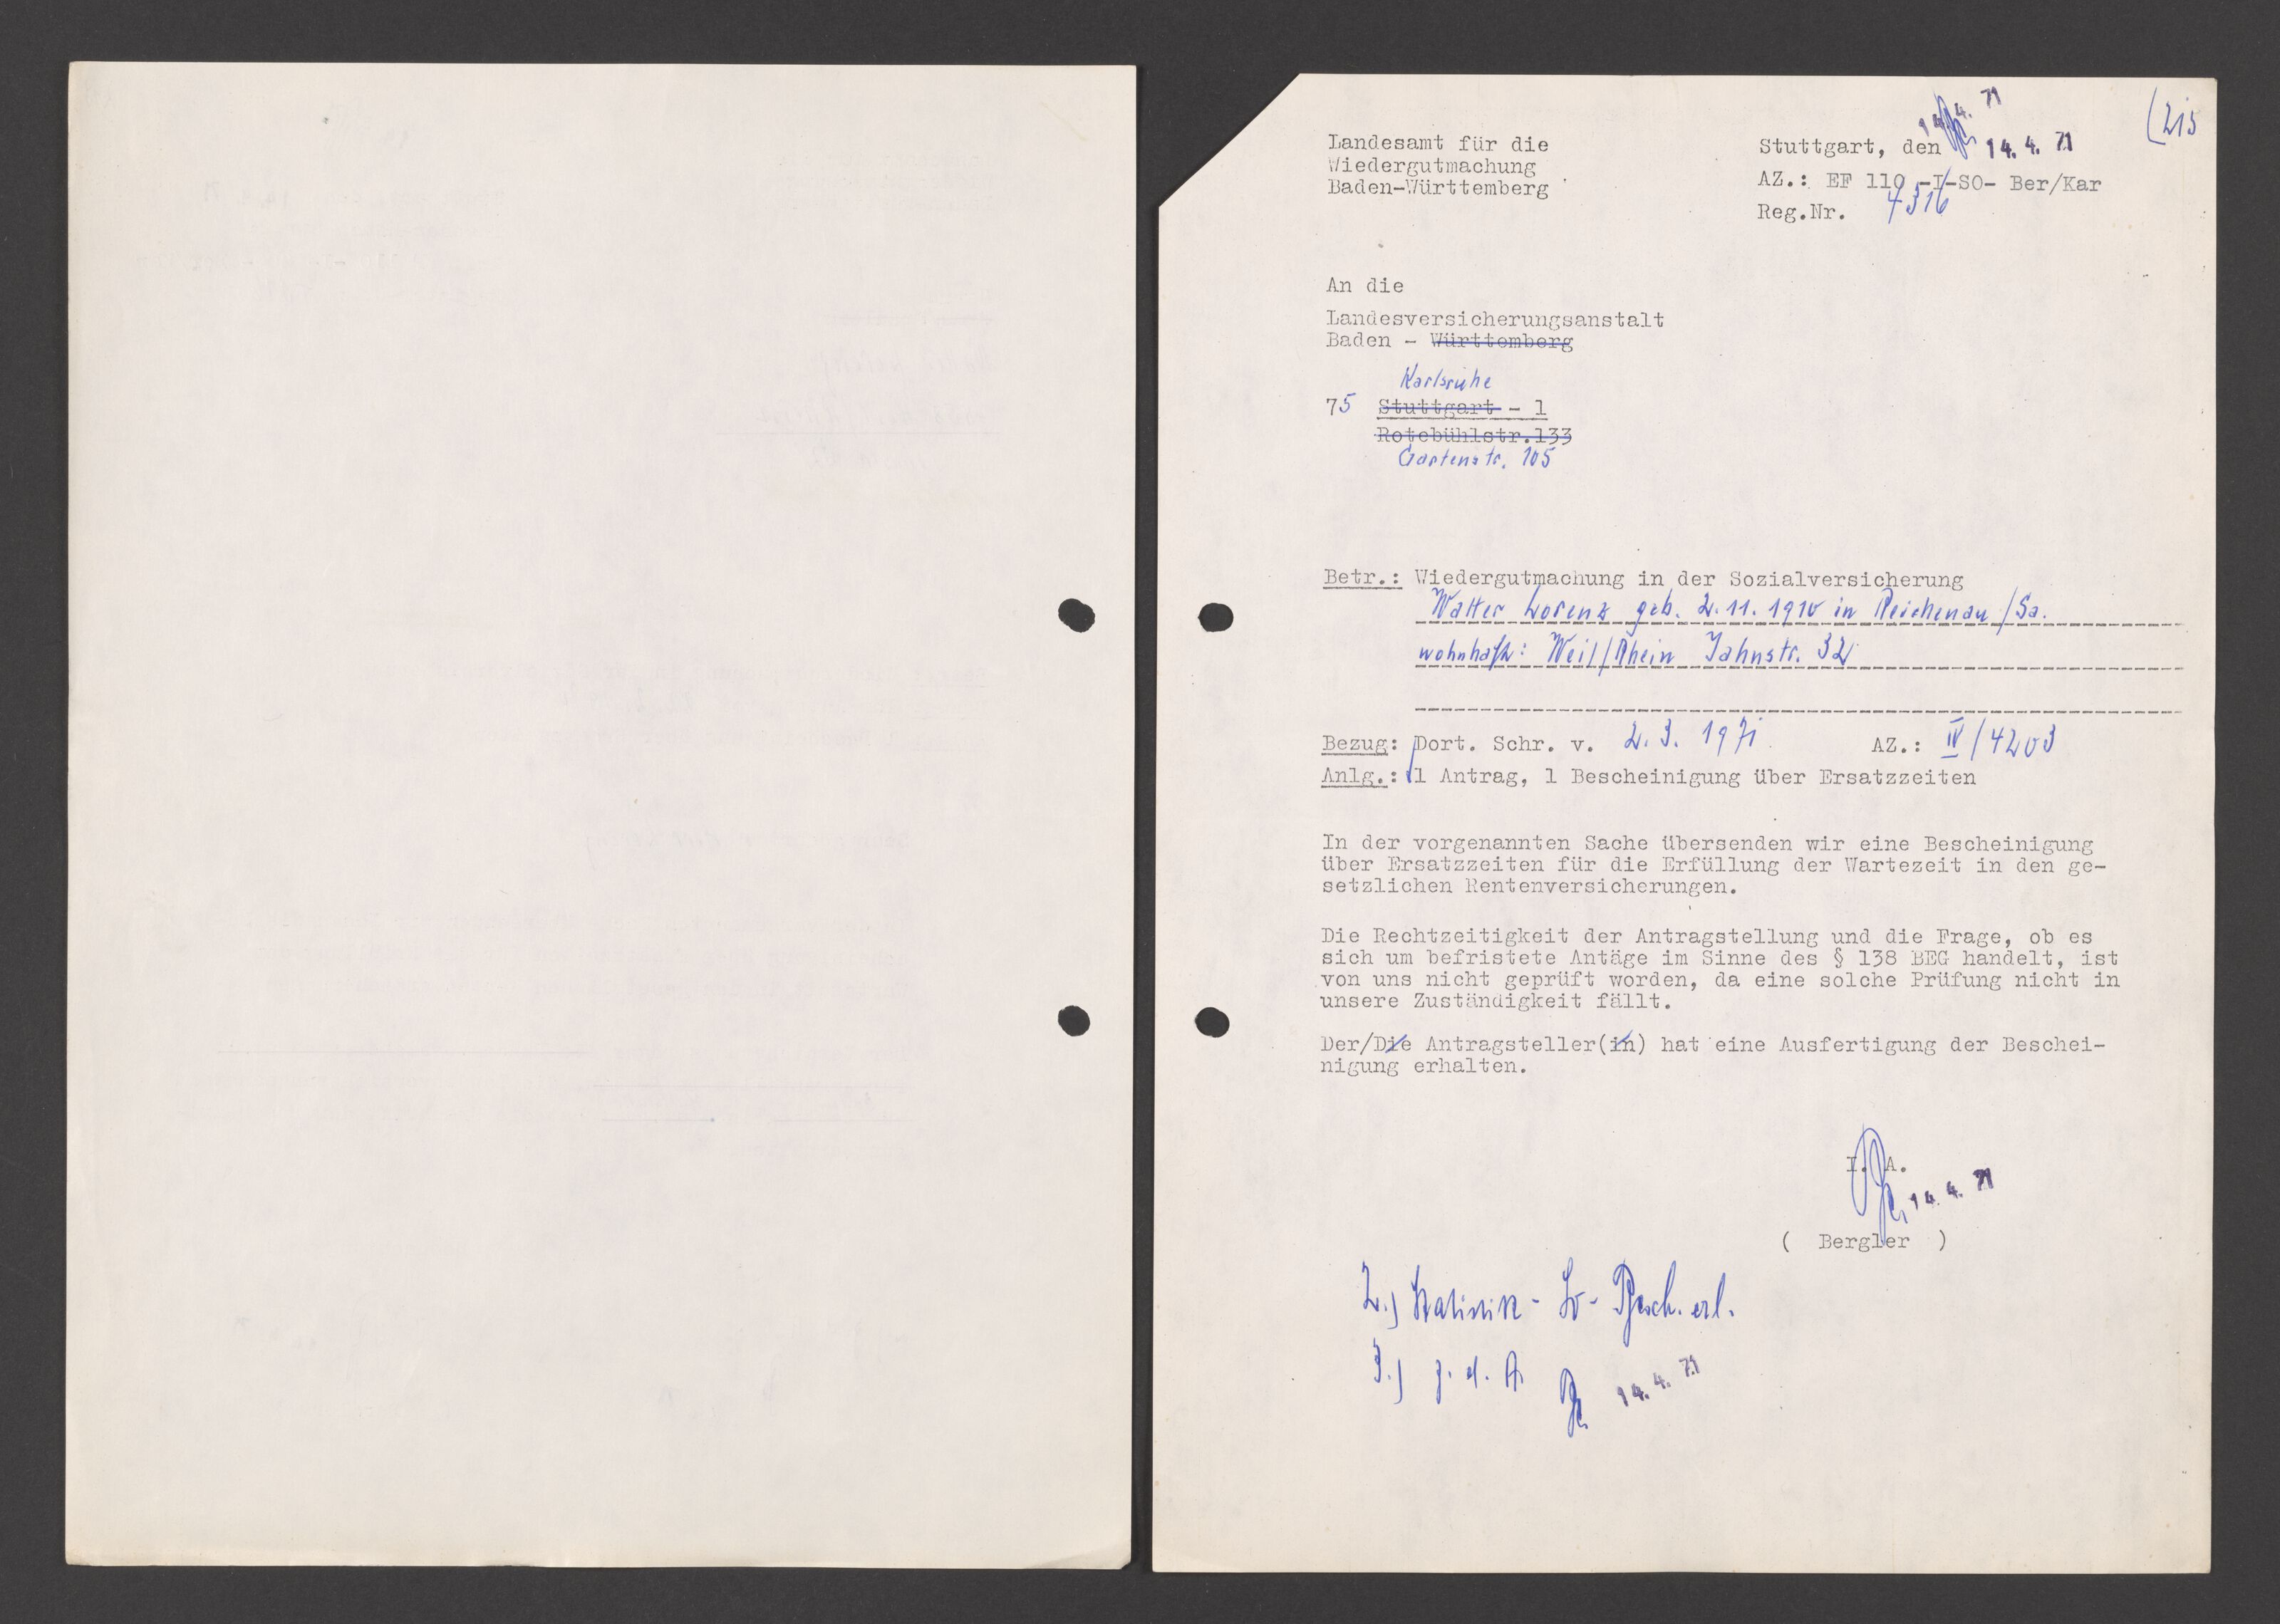 (215
14. 4. 71
Landesamt für die
Wiedergutmachung
Baden-Württemberg
Stuttgart, den 14. 4. 71
AZ.: EF 110 -I-SO- Ber/Kar
Reg.Nr. 4316
An die
Landesversicherungsanstalt
Baden - Württemberg
Karlsruhe
75 Stuttgart - 1
Rotebühlstr.133
Gartenstr. 105
Betr.: Wiedergutmachung in der Sozialversicherung
Walter Lorenz geb. 2.11.1910 in Reichenau/Sa.
wohnhaft: Weil/Rhein Jahnstr. 32
Bezug: Dort. Schr. v. 2.3.1971 AZ.: IV/4203
Anlg.: 1 Antrag, 1 Bescheinigung über Ersatzzeiten
In der vorgenannten Sache übersenden wir eine Bescheinigung
über Ersatzzeiten für die Erfüllung der Wartezeit in den ge-
setzlichen Rentenversicherungen.
Die Rechtzeitigkeit der Antragstellung und die Frage, ob es
sich um befristete Antäge im Sinne des § 138 BEG handelt, ist
von uns nicht geprüft worden, da eine solche Prüfung nicht in
unsere Zuständigkeit fällt.
Der/Die Antragsteller(in) hat eine Ausfertigung der Beschei-
nigung erhalten.
I. A.
14. 4. 71
( Bergler )
2.) Statistik - So - Besch. erl.
3.) z. d. A. 14. 4. 71